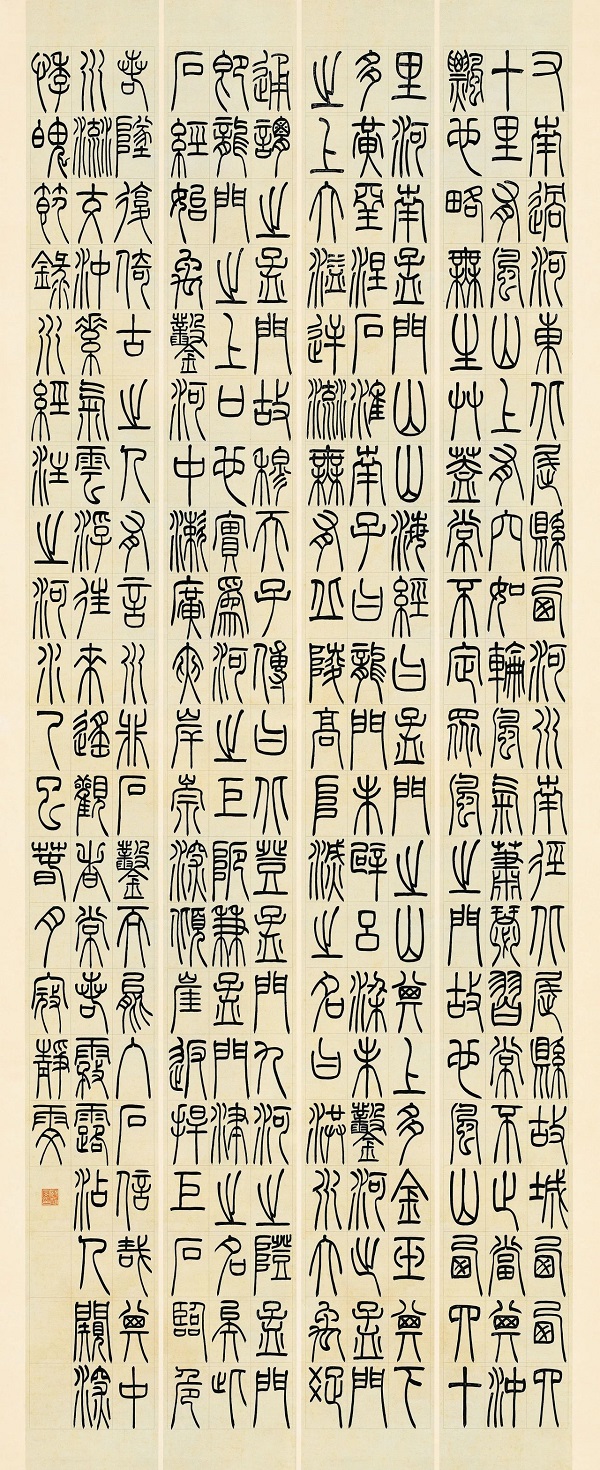 又南過河東北屈縣西河水南逕北屈縣故城西西四
十里有風山上有穴如輪風氣蕭瑟習常不止當其沖
飄也略無生艸蓋常不定眾風之門故也風山西四十
里河南孟門山山海經曰孟門之山其上多金玉其下
多黃堊涅石淮南子曰龍門未辟呂梁未鑿河出孟門
之上大溢逆流無有丘陵高阜滅之名曰洪水大禹疏
通謂之孟門故穆天子傳曰北登孟門九河之隥孟門
即龍門之上口也實為河之巨阨兼孟門津之名矣此
石經始禹鑿河中漱廣夾岸崇深傾崖返捍巨石臨危
若墜復倚古之人有言水非石鑿而能入石信哉其中
水流交沖素氣雲浮往來遙觀者常若霧露沾人闚深
悸魄節錄水經注之河水乙巳春月寇靜雯